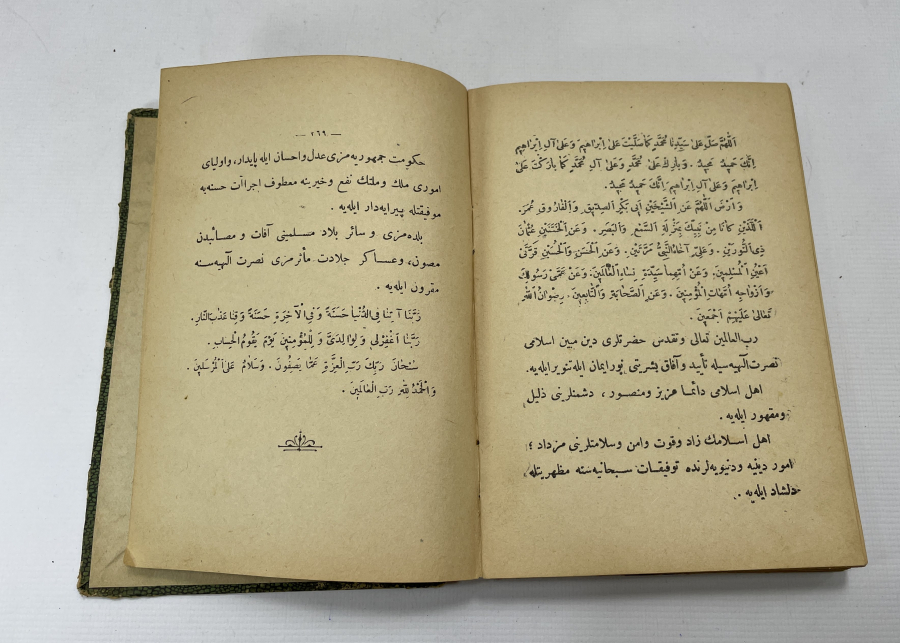 اَللّٰهُمَّ صَلِّ عَلٰى سَيِّدِنَا مُحَمَّدٍ كَمَا صَلَّيْتَ عَلٰى اِبْرَاهِيمَ وَعَلٰى آلِ اِبْرَاهِيمَ
اِنَّكَ حَمِيدٌ مَجِيدٌ . وَبَارِكْ عَلٰى مُحَمَّدٍ وَعَلٰى آلِ مُحَمَّدٍ كَمَا بَارَكْتَ عَلٰى
اِبْرَاهِيمَ وَعَلٰى آلِ اِبْرَاهِيمَ اِنَّكَ حَمِيدٌ مَجِيدٌ .
وَارْضَ اَللّٰهُمَّ عَنِ الشَّيْخَيْنِ اَبِى بَكْرٍ الصِّدِّيقِ وَالْفَارُوقِ عُمَرَ .
اَللَّذَيْنِ كَانَا مِنْ نَبِيِّكَ بِمَنْزِلَةِ السَّمْعِ وَالْبَصَرِ . وَعَنِ الْخَتَنَيْنِ عُثْمَانَ
ذِى النُّورَيْنِ . وَعَلِىٍّ اَخَاهُ النَّبِىُّ مَرَّتَيْنِ . وَعَنِ الْحَسَنِ وَالْحُسَيْنِ قُرَّتَىْ
اَعْيُنِ الْمُسْلِمِينَ . وَعَنْ اُمِّهِمَا سَيِّدَةِ نِسَاءِ الْعَالَمِينَ . وَعَنْ عَمَّىْ رَسُولِكَ
وَاَزْوَاجِهِ اُمَّهَاتِ الْمُؤْمِنِينَ . وَعَنِ الصَّحَابَةِ وَالتَّابِعِينَ . رِضْوَانُ اللّٰهِ
تَعَالٰى عَلَيْهِمْ اَجْمَعِينَ .
رب العالمين تعالى وتقدس حضرتلرى دين مبين اسلامى
نصرت الٓهيه سيله تأييد وآفاق بشريتى نور ايمان ايله تنوير ايله يه .
اهل اسلامى دائما عزيز ومنصور ، دشمنلرينى ذليل
ومقهور ايله يه .
اهل اسلامك زاد وقوت وامن وسلامتلرينى مزداد ؛
امور دينيه ودنيويه لرنده توفيقات سبحانيه سنه مظهريتله
دلشاد ايله يه .
— ٢٦٩ —
حكومت جمهوريه مزى عدل واحسان ايله پايدار ، واولياى
امورى ملك وملتك نفع وخيرينه معطوف اجراآت حسنه يه
موفقيتله پيرايه دار ايله يه .
بلده مزى و سائر بلاد مسلمينى آفات و مصائبدن
مصون ، وعساكر جلادت مأثرمزى نصرت الٓهيه سنه
مقرون ايله يه .
رَبَّنَا آتِنَا فِى الدُّنْيَا حَسَنَةً وَفِى الْاٰخِرَةِ حَسَنَةً وَقِنَا عَذَابَ النَّارِ .
رَبَّنَا اغْفِرْلِى وَلِوَالِدَىَّ وَلِلْمُؤْمِنِينَ يَوْمَ يَقُومُ الْحِسَابُ .
سُبْحَانَ رَبِّكَ رَبِّ الْعِزَّةِ عَمَّا يَصِفُونَ . وَسَلَامٌ عَلَى الْمُرْسَلِينَ .
وَالْحَمْدُ لِلّٰهِ رَبِّ الْعَالَمِينَ .